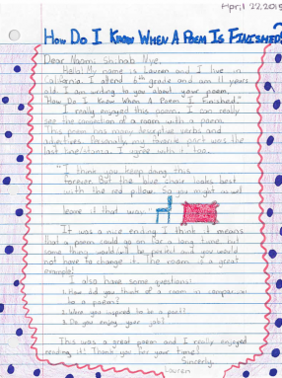 April 22, 2015
HOW DO I KNOW WHEN A POEM IS FINISHED?
Dear Naomi Shihab Nye,
Hello! My name is Lauren and I live in
California. I attend 6th grade and am 11 years
old. I am writing to you about your poem,
"How Do I Know When A Poem Is Finished."
I really enjoyed this poem. I can really
see the connection of a room with a poem.
This poem has many descriptive verbs and
adjectives. Personally my favorite part was the
last line/stanza. I agree with it too.
"I think you keep doing this
forever. But the blue chair looks best
with the red pillow. So you might as well
leave it that way."
It was a nice ending. I think it means
that a poem could go on for a long time but
some things would be perfect and you would
not have to change it. The room is a great
example!
I also have some questions:
1. How did you think of a room in comparison
to a poem?
2. Were you inspired to be a poet?
3. Do you enjoy your job?
This was a great poem and I really enjoyed
reading it! Thank you for your time!
Sincerely,
Lauren